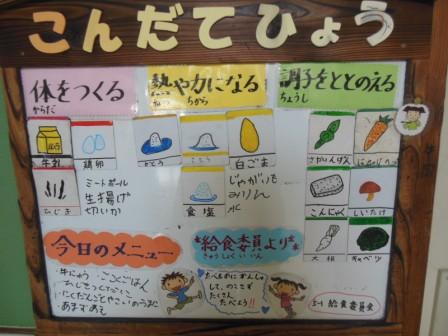 こんだてひょう
体をつくる
からだ
熱や力になる
ねつ ちから
調子をととのえる
ちょうし
牛乳
鶏卵
さとう
白ごま
さやいんげん
にんじん
ひじき
ミートボール
生揚げ
切いか
食塩
じゃがいも
みりん
米
こんにゃく
しいたけ
大根
キャベツ
今日のメニュー
・牛にゅう
・ひじきのつくだに
・あますあえ
*給食委員より*
きゅうしょくいいん
たべものにかんしゃ
して、のこさず
たくさん
たべよう!!
給食委員会